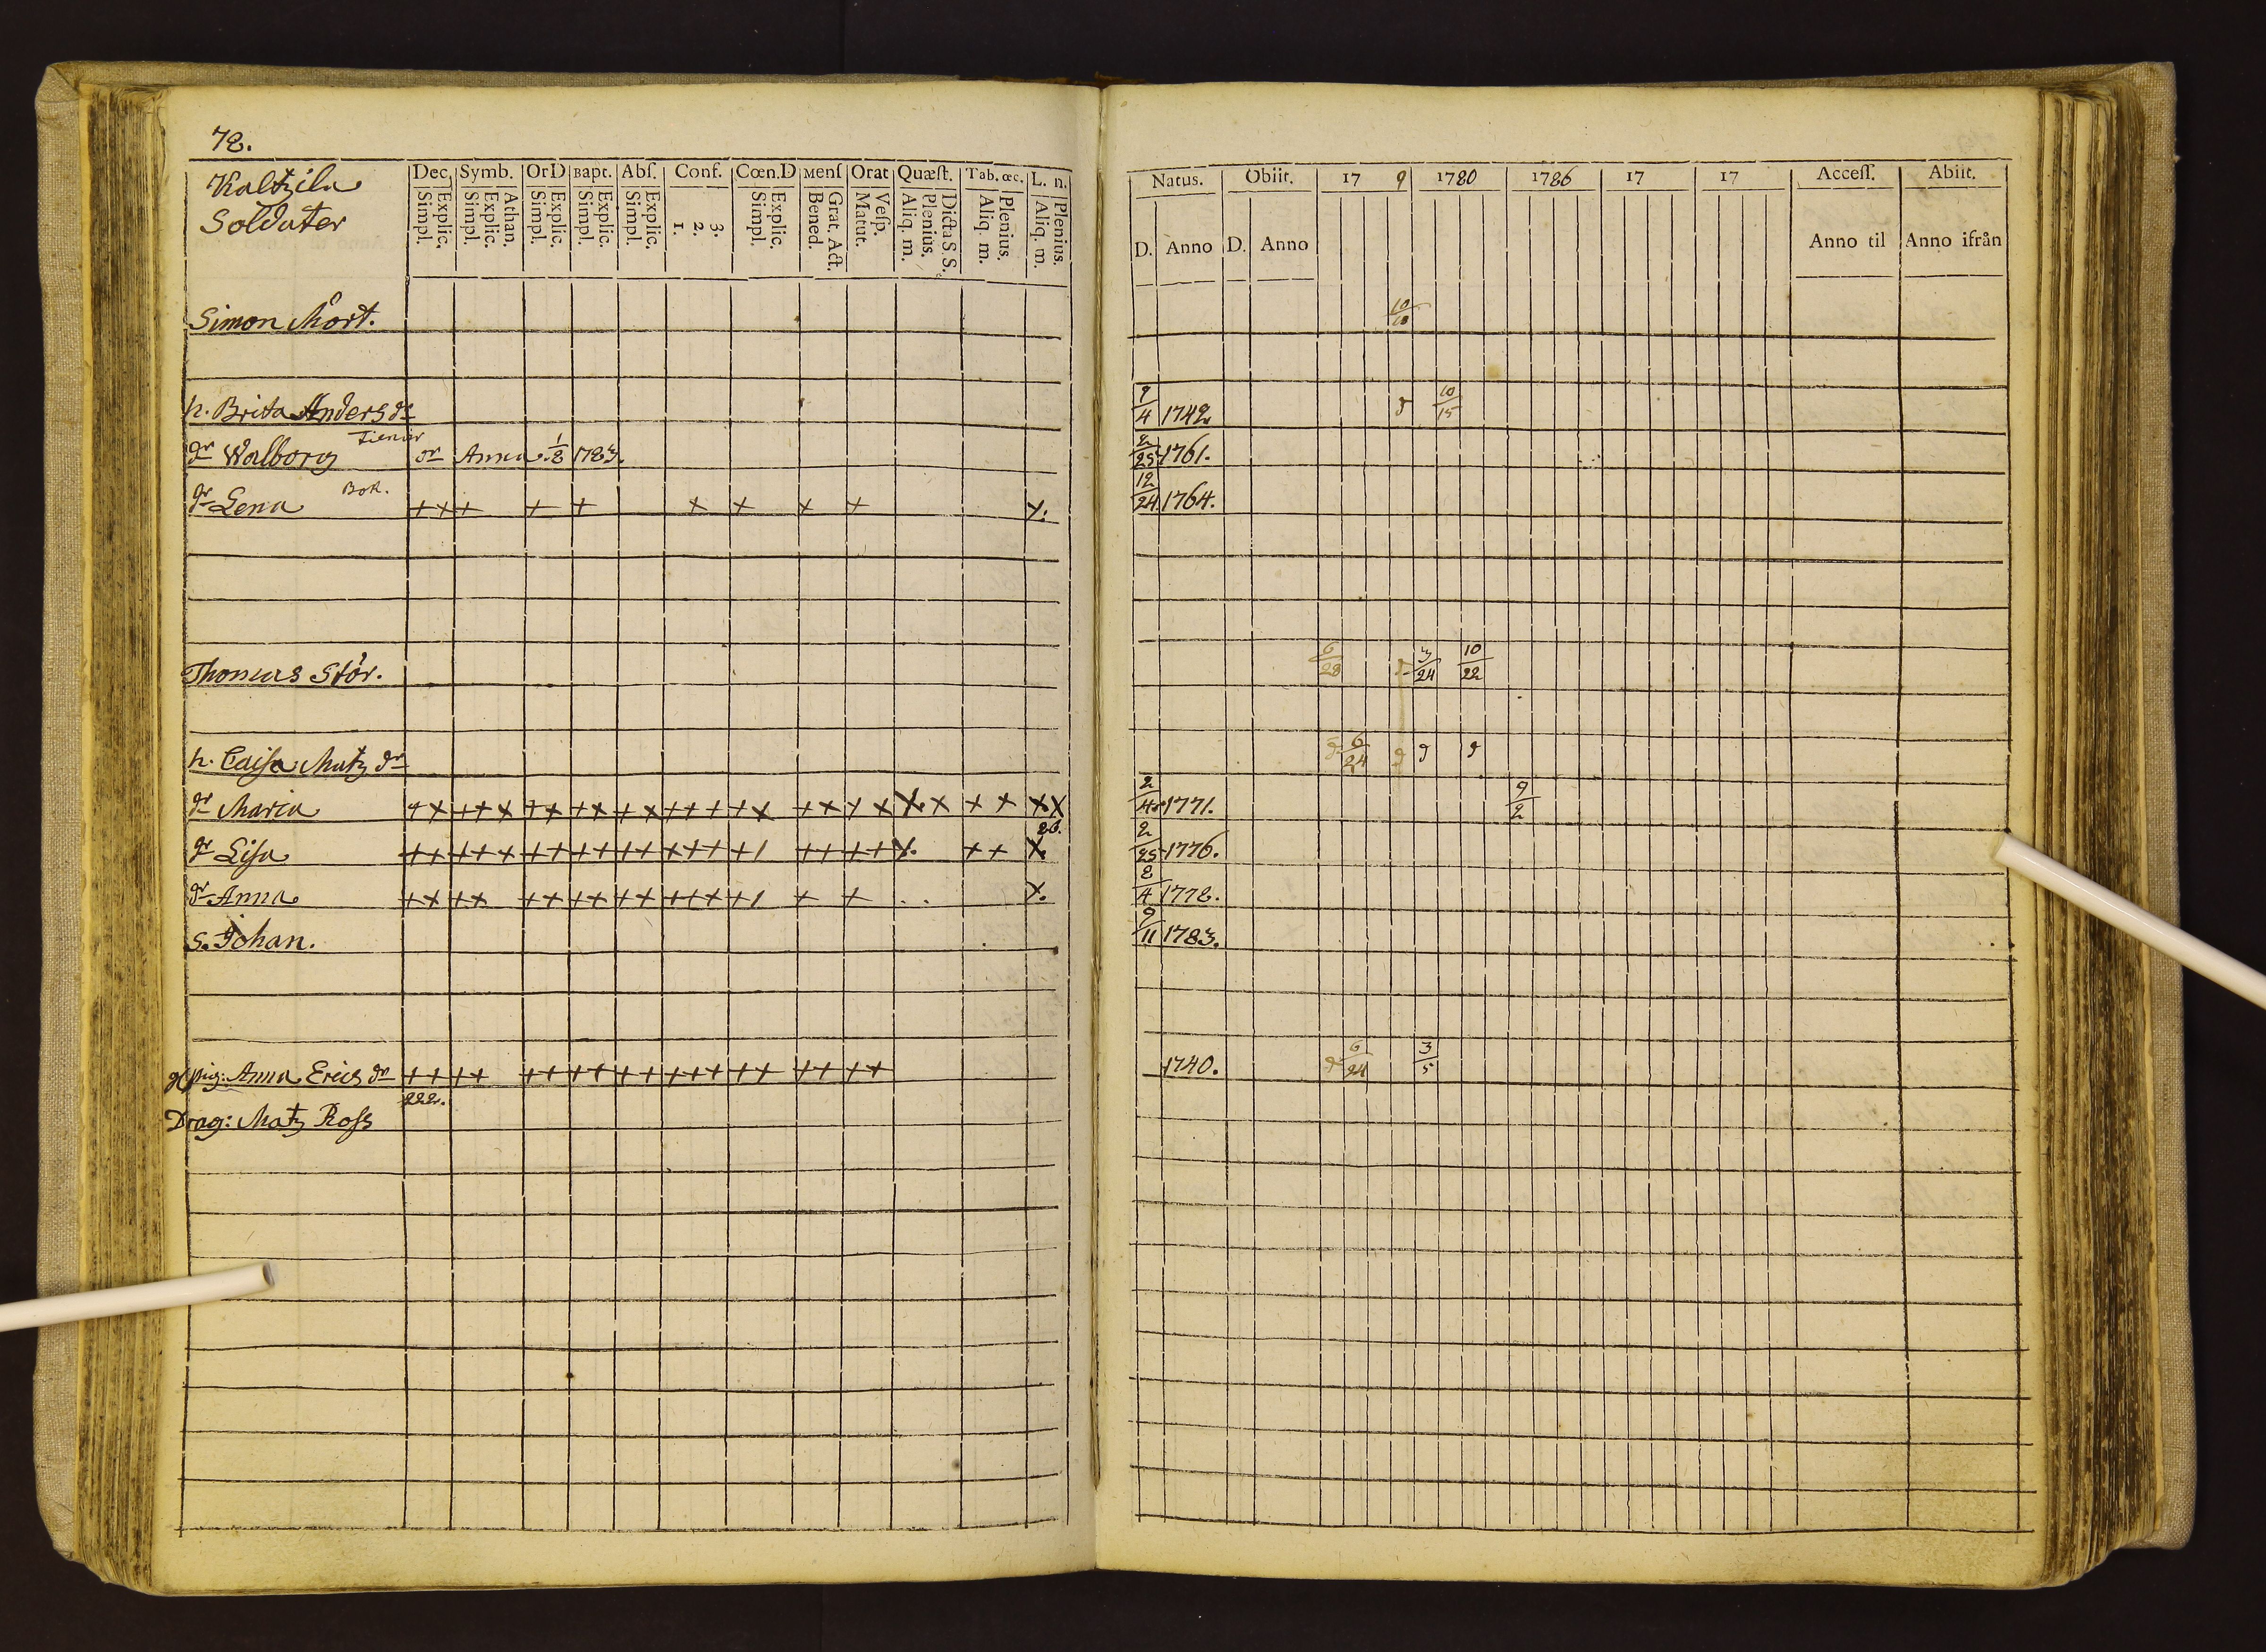 78.
Kaltzila
Soldater
Dec. Symb. Or D Bapt. Abſ. Conf. Cœn.D Menſ Orat Quæſt. Tab. œc. L. n.
Explic. Simpl. Athan. Explic. Simpl. Explic. Simpl. Explic. Simpl. Explic. Simpl. 3. 2. 1. Explic. Simpl. Grat. Act. Bened. Veſp. Matut. Dicta S. S. Plenius. Aliq. m. Plenius. Aliq. m. Plenius. Aliq. m.
Natus. Obiit. 17 9 1780 1786 17 17 Acceſſ. Abiit.
D. Anno D. Anno Anno til Anno ifrån
Simon Mört. 10/
h. Brita Anders dr 9/4 1742 d 10/15
Tienar
dr Walborg dr Anna 1/8 1783. 2/25 1761.
Bok.
dr Lena + + + + + x x x + x. 12/24 1764.
Thomas Stör. 6/28 d 3/24 10/22
h. Caisa Matz dr d 6/24 d d d
dr Maria + x + + x + x + x + x + + + + x + x + x x. x x + x x 2/4 1771. 9/2
26.
dr Lisa + + + + x + + + + + + x + + + / + + + + x. x + x 2/25 1776.
dr Anna + x + x + x + x + x + + x + / + + . . x. 2/4 1778.
s. Johan. 9/11 1783.
pig: Anna Erics dr + + + + + + + + + + + + + + + + + + + 1740. d 6/24 3/5
222.
Drag: Matz Ross